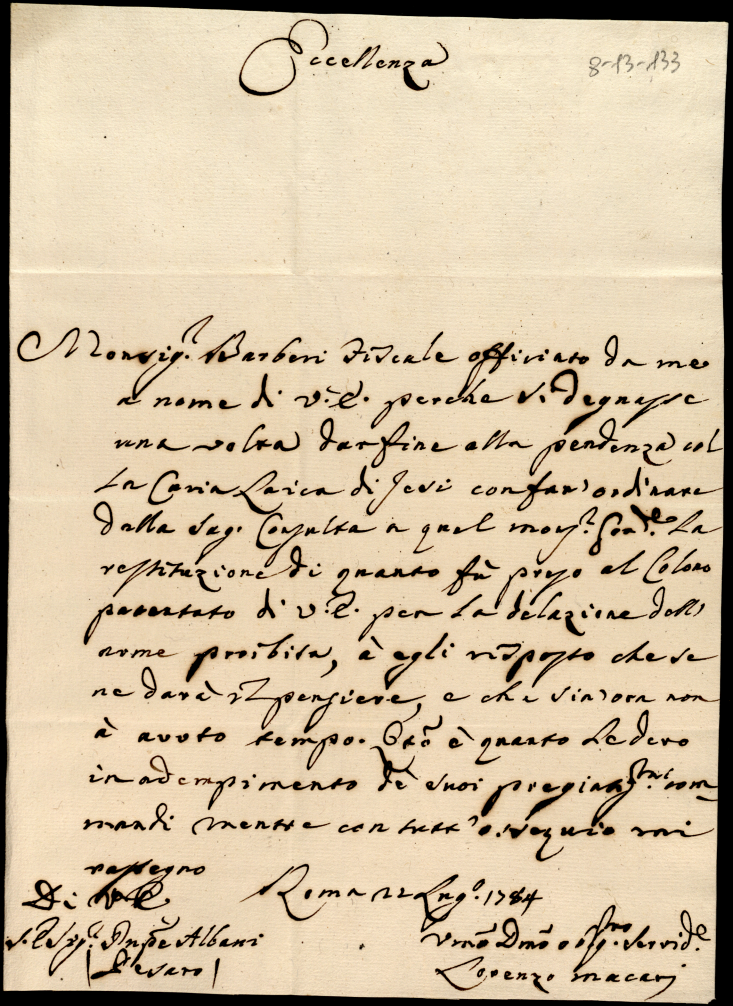 Eccellenza
8-13-133
Monsig.r Barberi Fiscale officiato da me
a nome di V.E. perche si degnasse
una volta dar fine alla pendenza col
la Curia Laica di Jesi con far' ordinare
dalla Sag. Consulta a quel Mons.r Gov.e la
restituzione di quanto fù preso al Colono
patentato di V.E. per la delazione dell'
arme proibita, à egli risposto che se
ne darà il pensiere, e che sin'ora non
à avuto tempo. Qto è quanto le devo
in adempimento dè suoi pregiatis.mi com
mandi mentre con tutt'ossequio mi
rassegno
Di V.E. Roma 22 Lug.o 1784
Albani
(Pesaro)
Umo Dmo o servid.e
Lorenzo Macarj